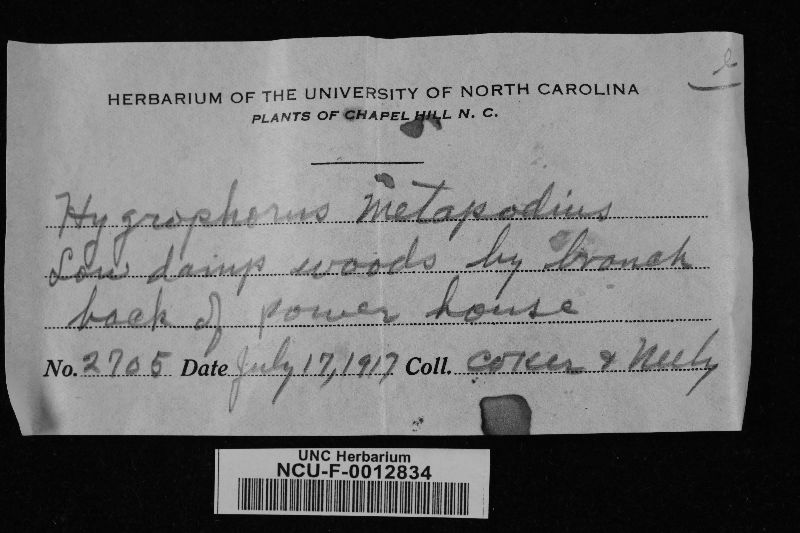 HERBARIUM OF THE UNIVERSITY OF NORTH CAROLINA
PLANTS OF CHAPEL HILL N. C.
Hygrophorus metapodius
Low damp woods by branch
back of power house
No. 2705 Date July 17, 1917 Coll. Coker &
UNC Herbarium
NCU-F-0012834